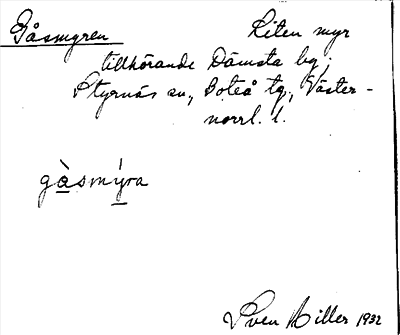 Gåsmyren Liten myr
tillhörande Dämsta by,
Styrnäs sn, Boteå tg, Väster-
norrl. l.
gàsmýra
Sven Hiller 1932